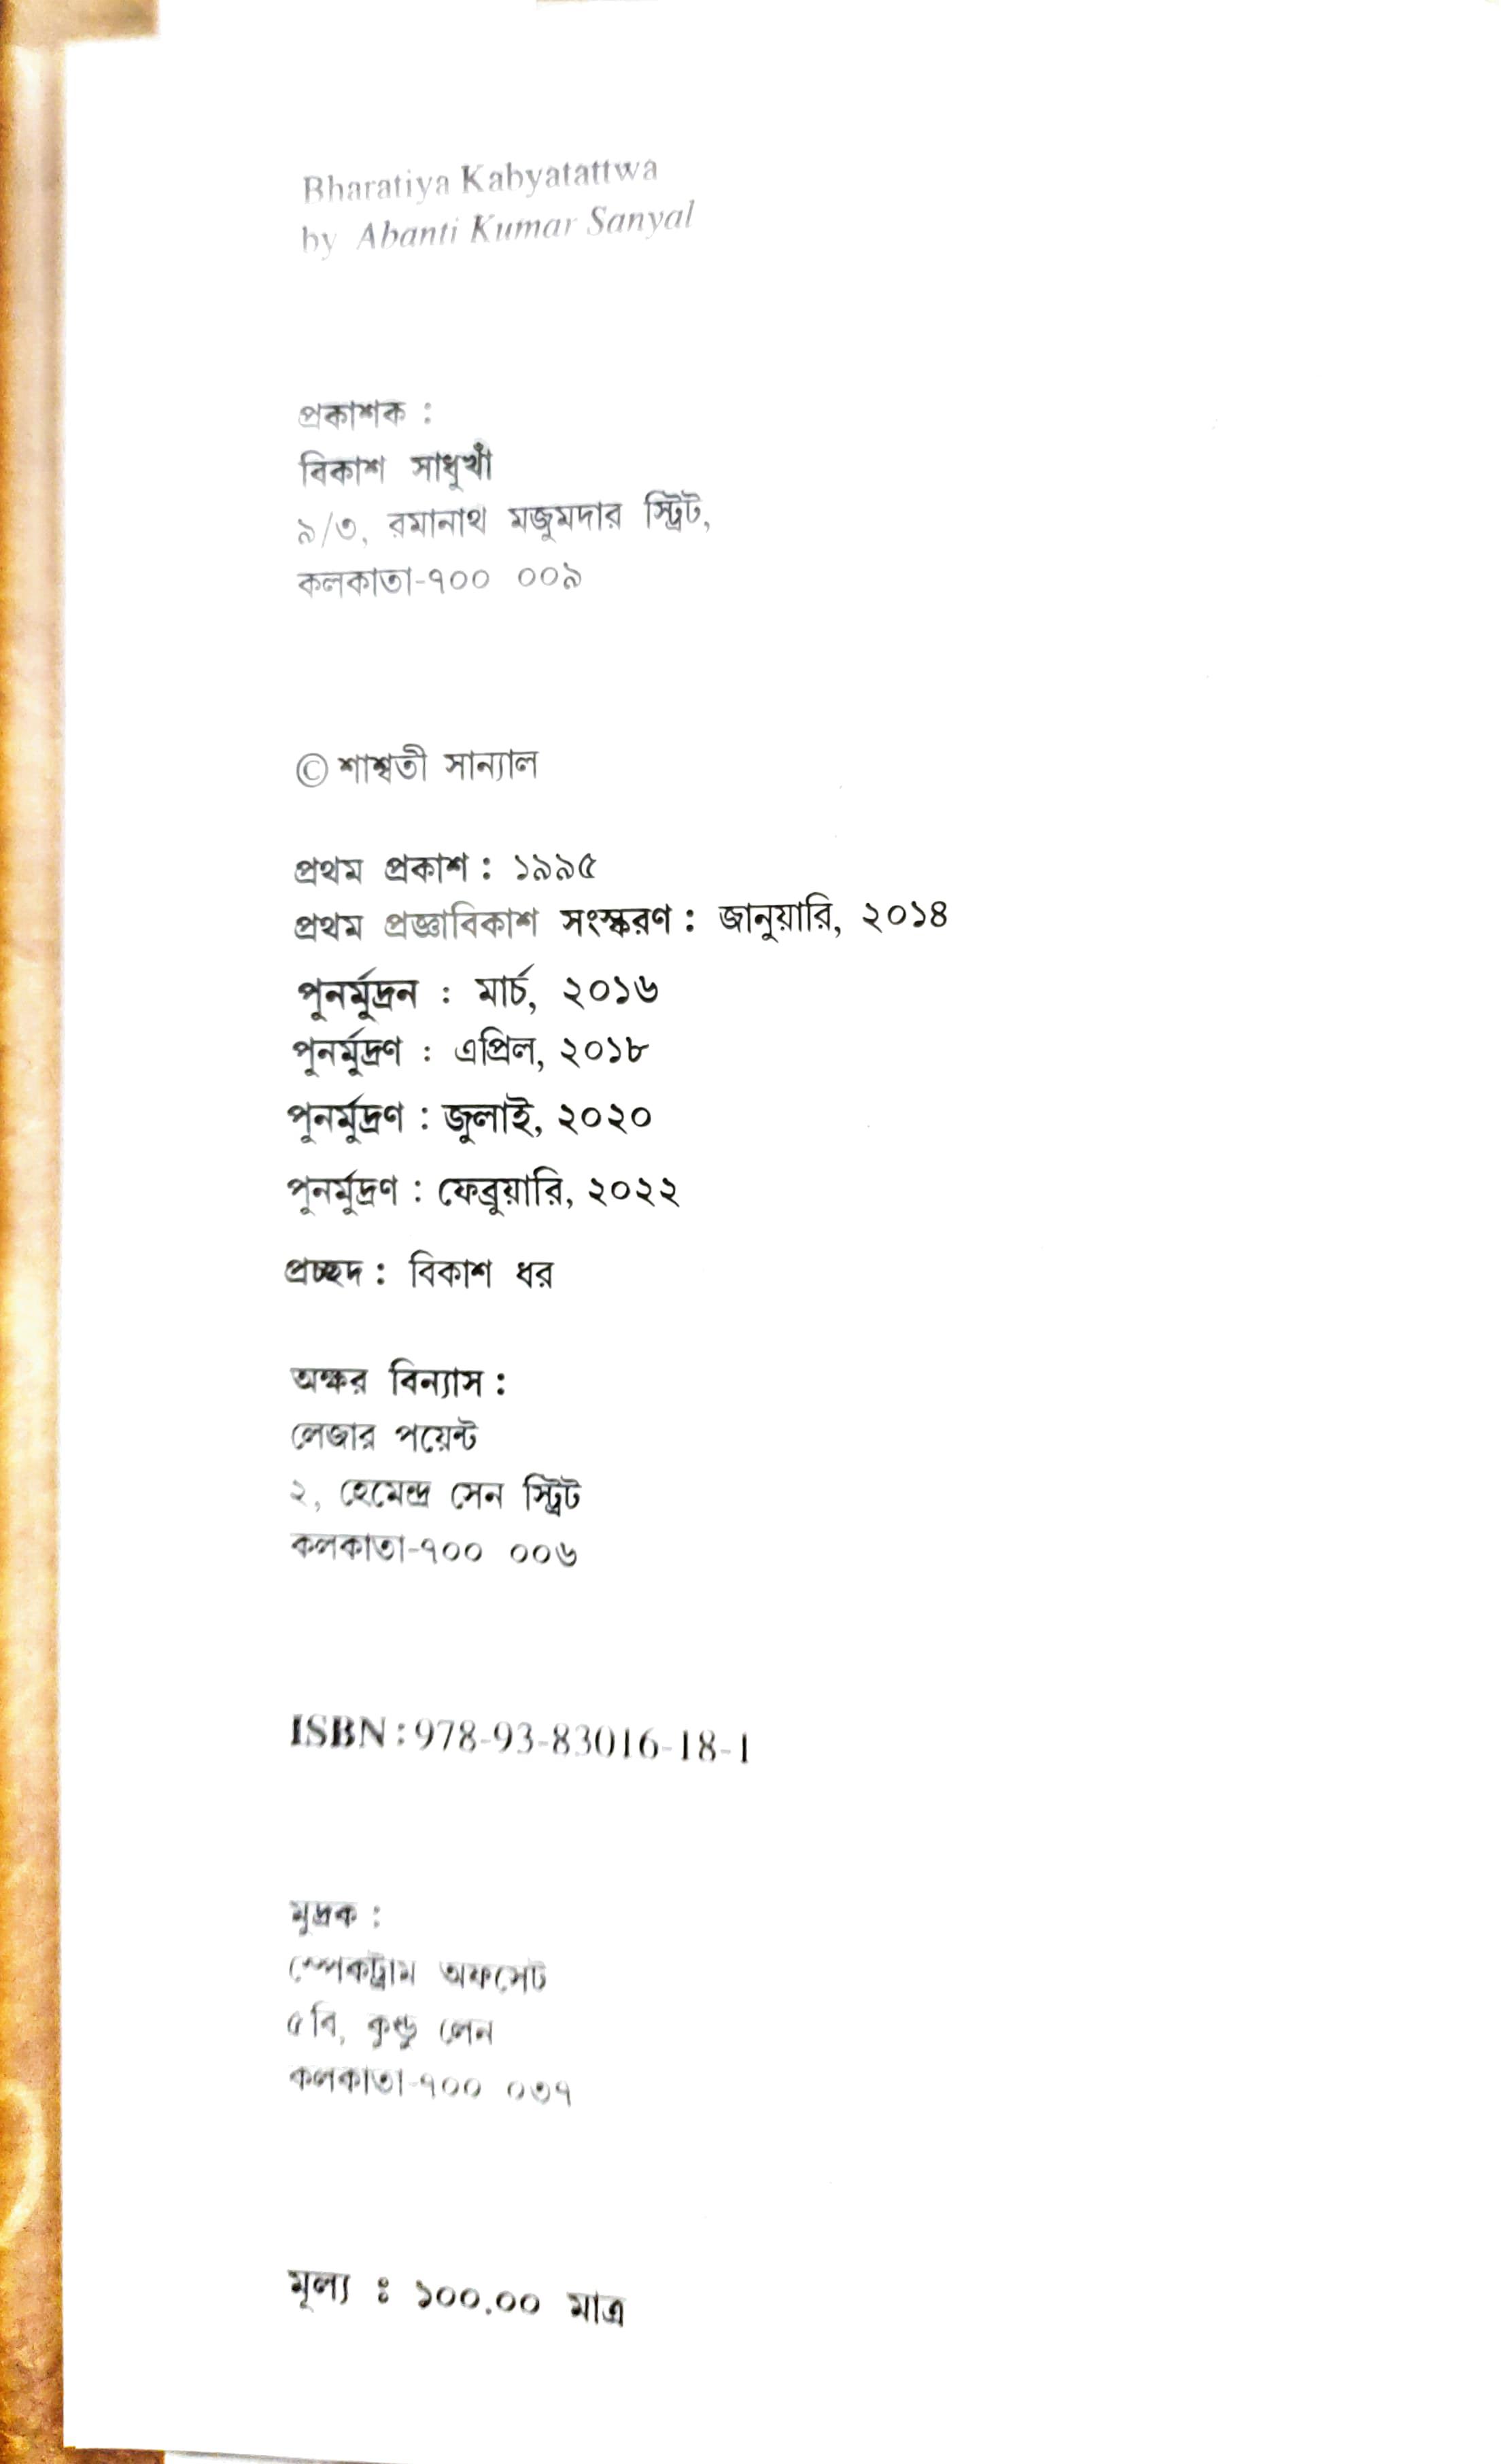 Bharatiya Kabyatattwa
by Abanti Kumar Sanyal
প্রকাশক :
বিকাশ সাধুখাঁ
৯/৩, রমানাথ মজুমদার স্ট্রিট,
কলকাতা-৭০০ ০০৯
© শাশ্বতী সান্যাল
প্রথম প্রকাশ : ১৯৯৫
প্রথম প্রজ্ঞাবিকাশ সংস্করণ : জানুয়ারি, ২০১৪
পুনর্মুদ্রন : মার্চ, ২০১৬
পুনর্মুদ্রণ : এপ্রিল, ২০১৮
পুনর্মুদ্রণ : জুলাই, ২০২০
পুনর্মুদ্রণ : ফেব্রুয়ারি, ২০২২
প্রচ্ছদ : বিকাশ ধর
অক্ষর বিন্যাস :
লেজার পয়েন্ট
২, হেমেন্দ্র সেন স্ট্রিট
কলকাতা-৭০০ ০০৬
ISBN : 978-93-83016-18-1
মুদ্রক :
স্পেকট্রাম অফসেট
৫বি, কুণ্ডু লেন
কলকাতা-৭০০ ০৩৭
মূল্য ঃ ১০০.০০ মাত্র